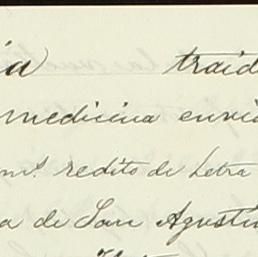 ia traid
medicina envia
m.ˢ redito de Letra
a de San Agustin